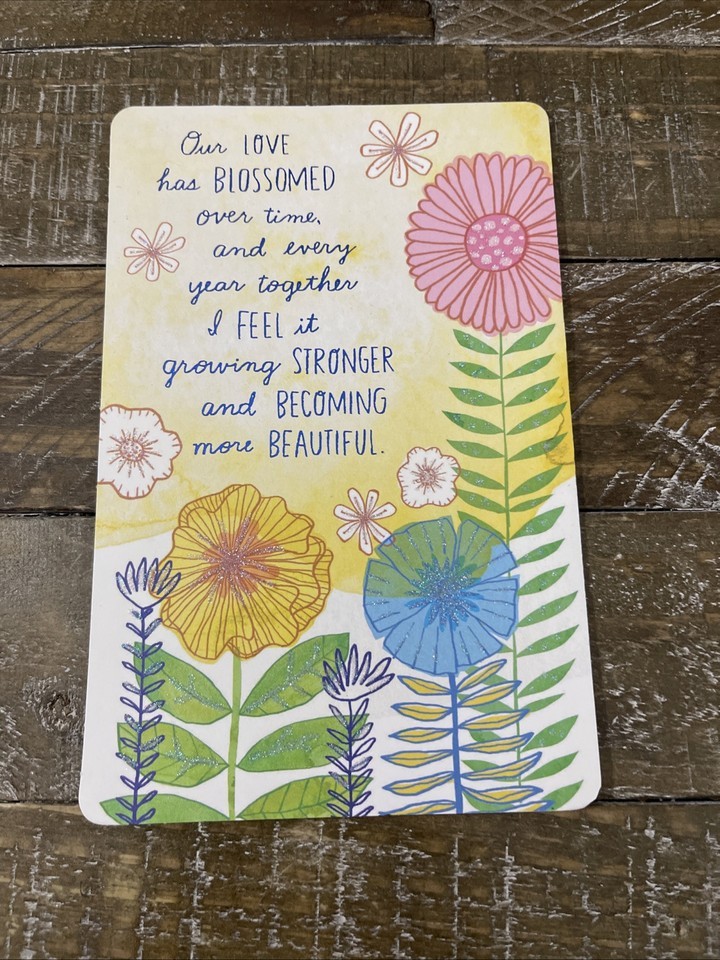 Our LOVE
has BLOSSOMED
over time,
and every
year together
I FEEL it
growing STRONGER
and BECOMING
more BEAUTIFUL.